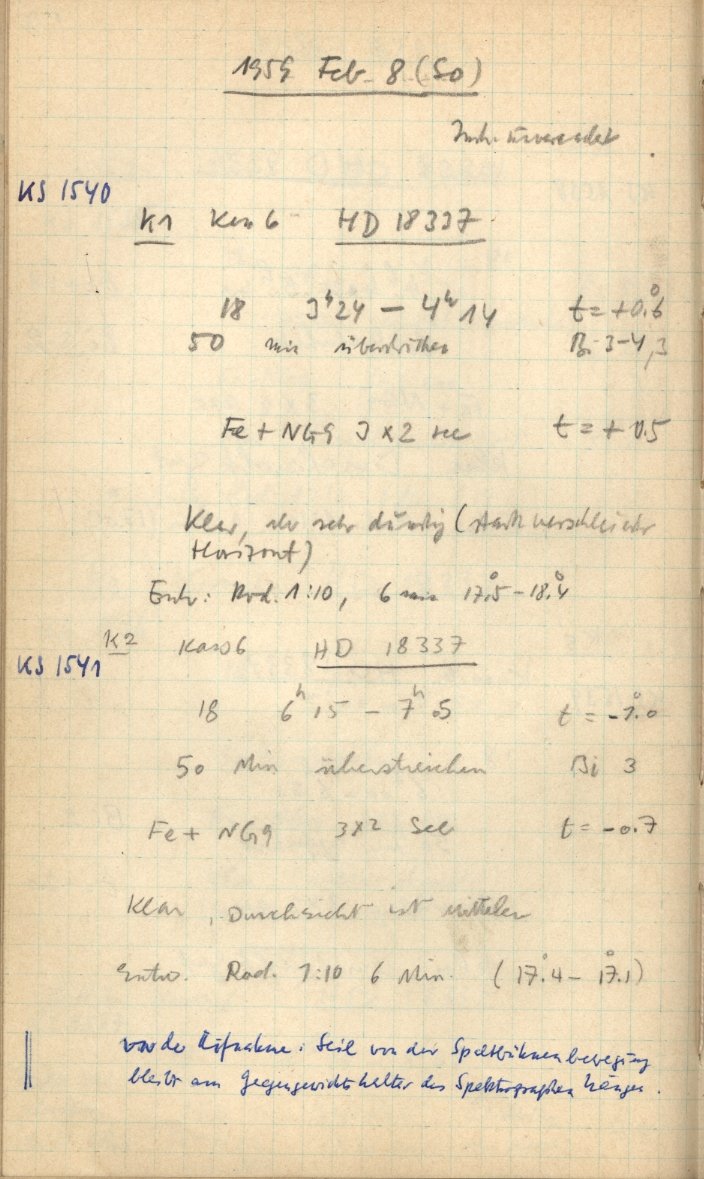 1959 Feb. 8 (So)
Instr. unverändert
KS 1540
K1 Kas 6 HD 18337
18 3h24 – 4h14 t = +0.°6
50 min überstrichen Bi 3-4,3
Fe + NG9 3 x 2 sec t = + 0.5
Klar, aber sehr dunstig (stark verschleierter
Horizont)
Entw: Rod. 1:10, 6 min 17.°5 – 18.°4
K2 Kas 6 HD 18337
KS 1541
18 6h15 – 7h05 t = -1.°0
50 Min überstreichen Bi 3
Fe + NG9 3x2 Sec t = -0.7
Klar, Durchsicht ist mittel
Entw. Rod. 1:10 6 Min. (17.°4 – 17.°1)
vor der Aufnahme: Seil von der Spaltbühnenbewegung
bleibt am Gegengewichtshalter des Spektrographen hängen.